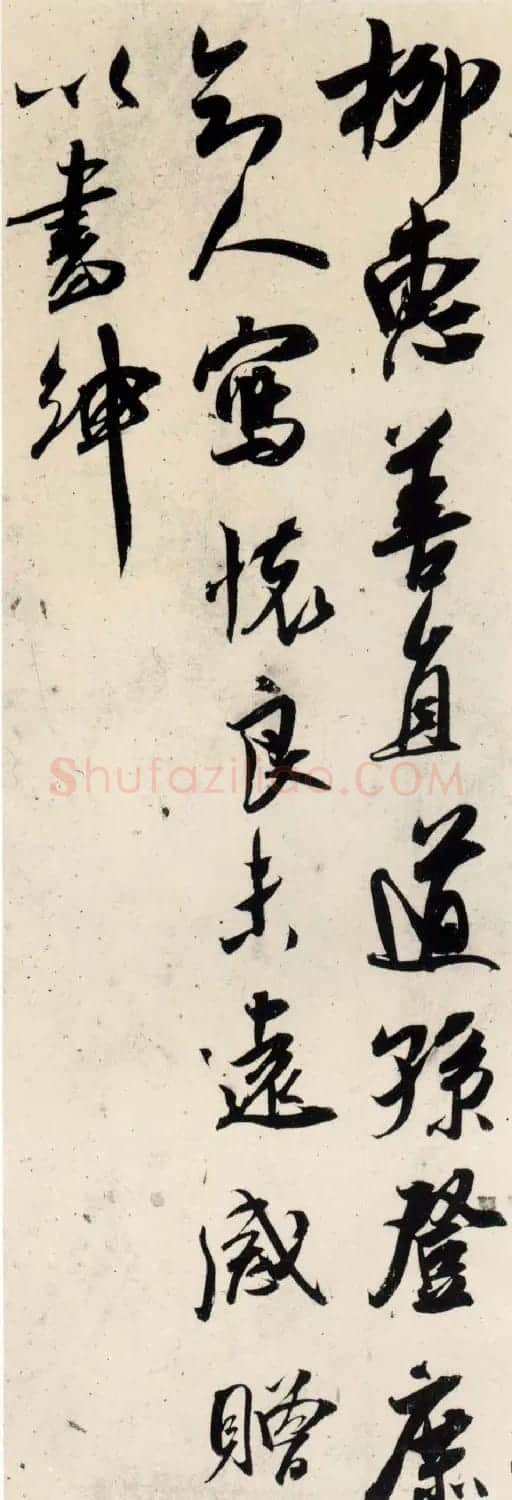 柳惠善直道孫登庶
知人寫懷良未遠感贈
以書紳
Shufaziliao.COM